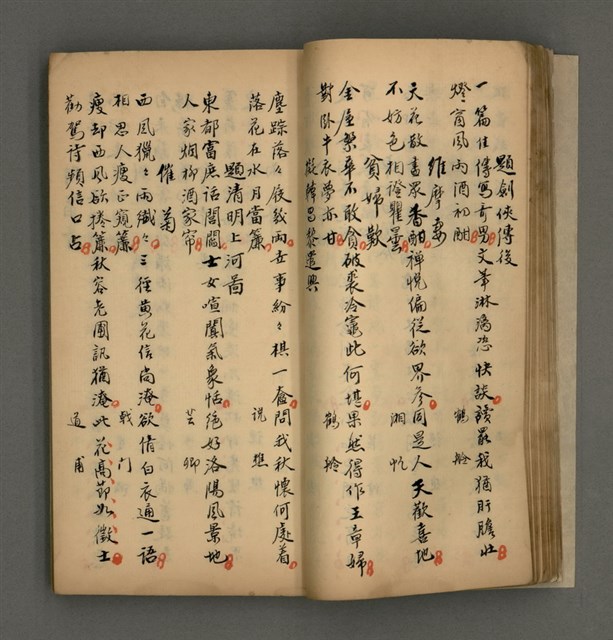 題劍俠傳後
一篇佳傳寫奇男文筆淋漓恣快談讀罷我猶肝膽壯
燈窗風雨酒初酣 鶴齡
維摩妻
天花散盡眾香酣禪悅偏從欲界參同是人天歡喜地
不妨色相證瞿曇 湘帆
貧婦歎
金屋繁華不敢貪破裘冷竈此何堪果然得作王章婦
對臥牛衣夢亦甘 鶴齡
擬韓昌黎遣興
塵踪落々廢致雨世事紛々棋一奩問我秋懷何處着
落花在水月當簾 說樵
題清明上河圖
東都富庶話閭閻士女喧闐氣象恬絕好洛陽風景地
人家烟柳酒家帘 芸卿
催菊
西風獵々雨纖々三徑黄花信尚淹欲倩白衣通一語
相思人瘦正窺簾 戟門
瘦却西風欲捲簾秋容老圃訊猶淹此花高節如徵士
勸駕詩頻信口占 道甫